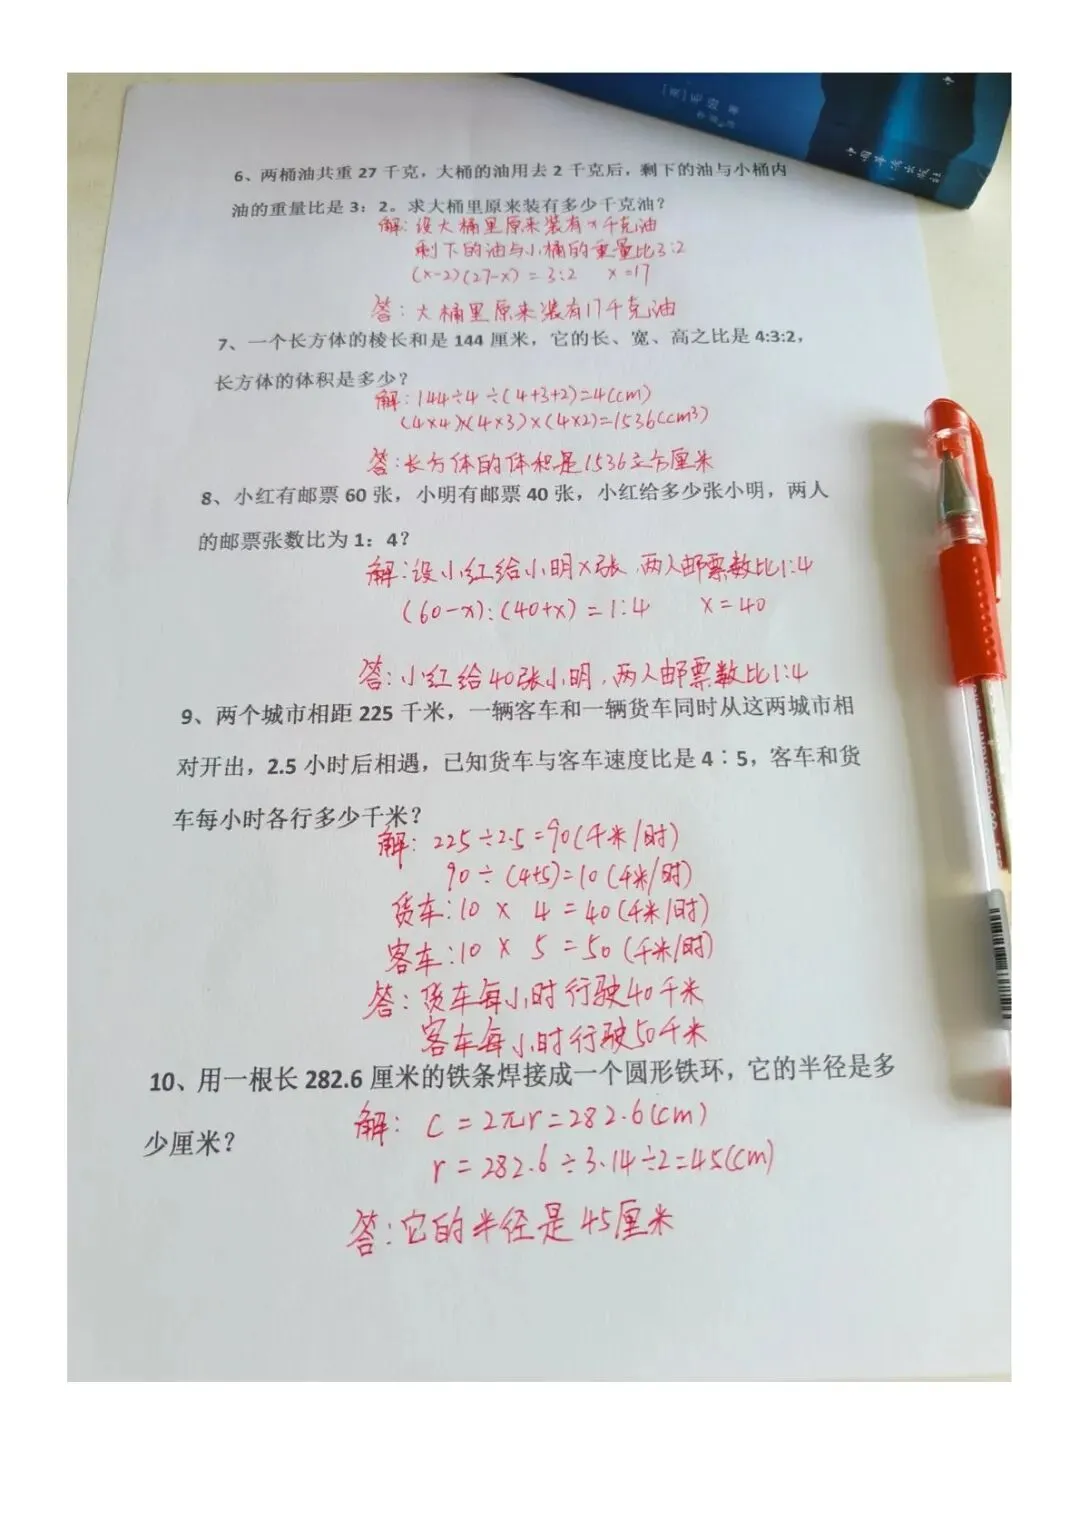 中国华侨出版社
6、两桶油共重 27 千克，大桶的油用去 2 千克后，剩下的油与小桶内
油的重量比是 3：2。求大桶里原来装有多少千克油？
解：设大桶里原来装有x千克油
剩下的油与小桶的重量比3:2
(x-2)(27-x) = 3:2 x=17
答：大桶里原来装有17千克油
7、一个长方体的棱长和是 144 厘米，它的长、宽、高之比是 4:3:2，
长方体的体积是多少？
解：144÷4÷(4+3+2)=4(cm)
(4×4)×(4×3)×(4×2)=1536(cm³)
答：长方体的体积是1536立方厘米
8、小红有邮票 60 张，小明有邮票 40 张，小红给多少张小明，两人
的邮票张数比为 1：4？
解：设小红给小明x张，两人邮票数比1:4
(60-x):(40+x)=1:4 x=40
答：小红给40张小明，两人邮票数比1:4
9、两个城市相距 225 千米，一辆客车和一辆货车同时从这两城市相
对开出，2.5 小时后相遇，已知货车与客车速度比是 4：5，客车和货
车每小时各行多少千米？
解：225÷2.5=90(千米/时)
90÷(4+5)=10(千米/时)
货车：10 × 4 = 40(千米/时)
客车：10 × 5 = 50(千米/时)
答：货车每小时行驶40千米
客车每小时行驶50千米
10、用一根长 282.6 厘米的铁条焊接成一个圆形铁环，它的半径是多
少厘米？
解：C=2πr=282.6(cm)
r=282.6÷3.14÷2=45(cm)
答：它的半径是45厘米